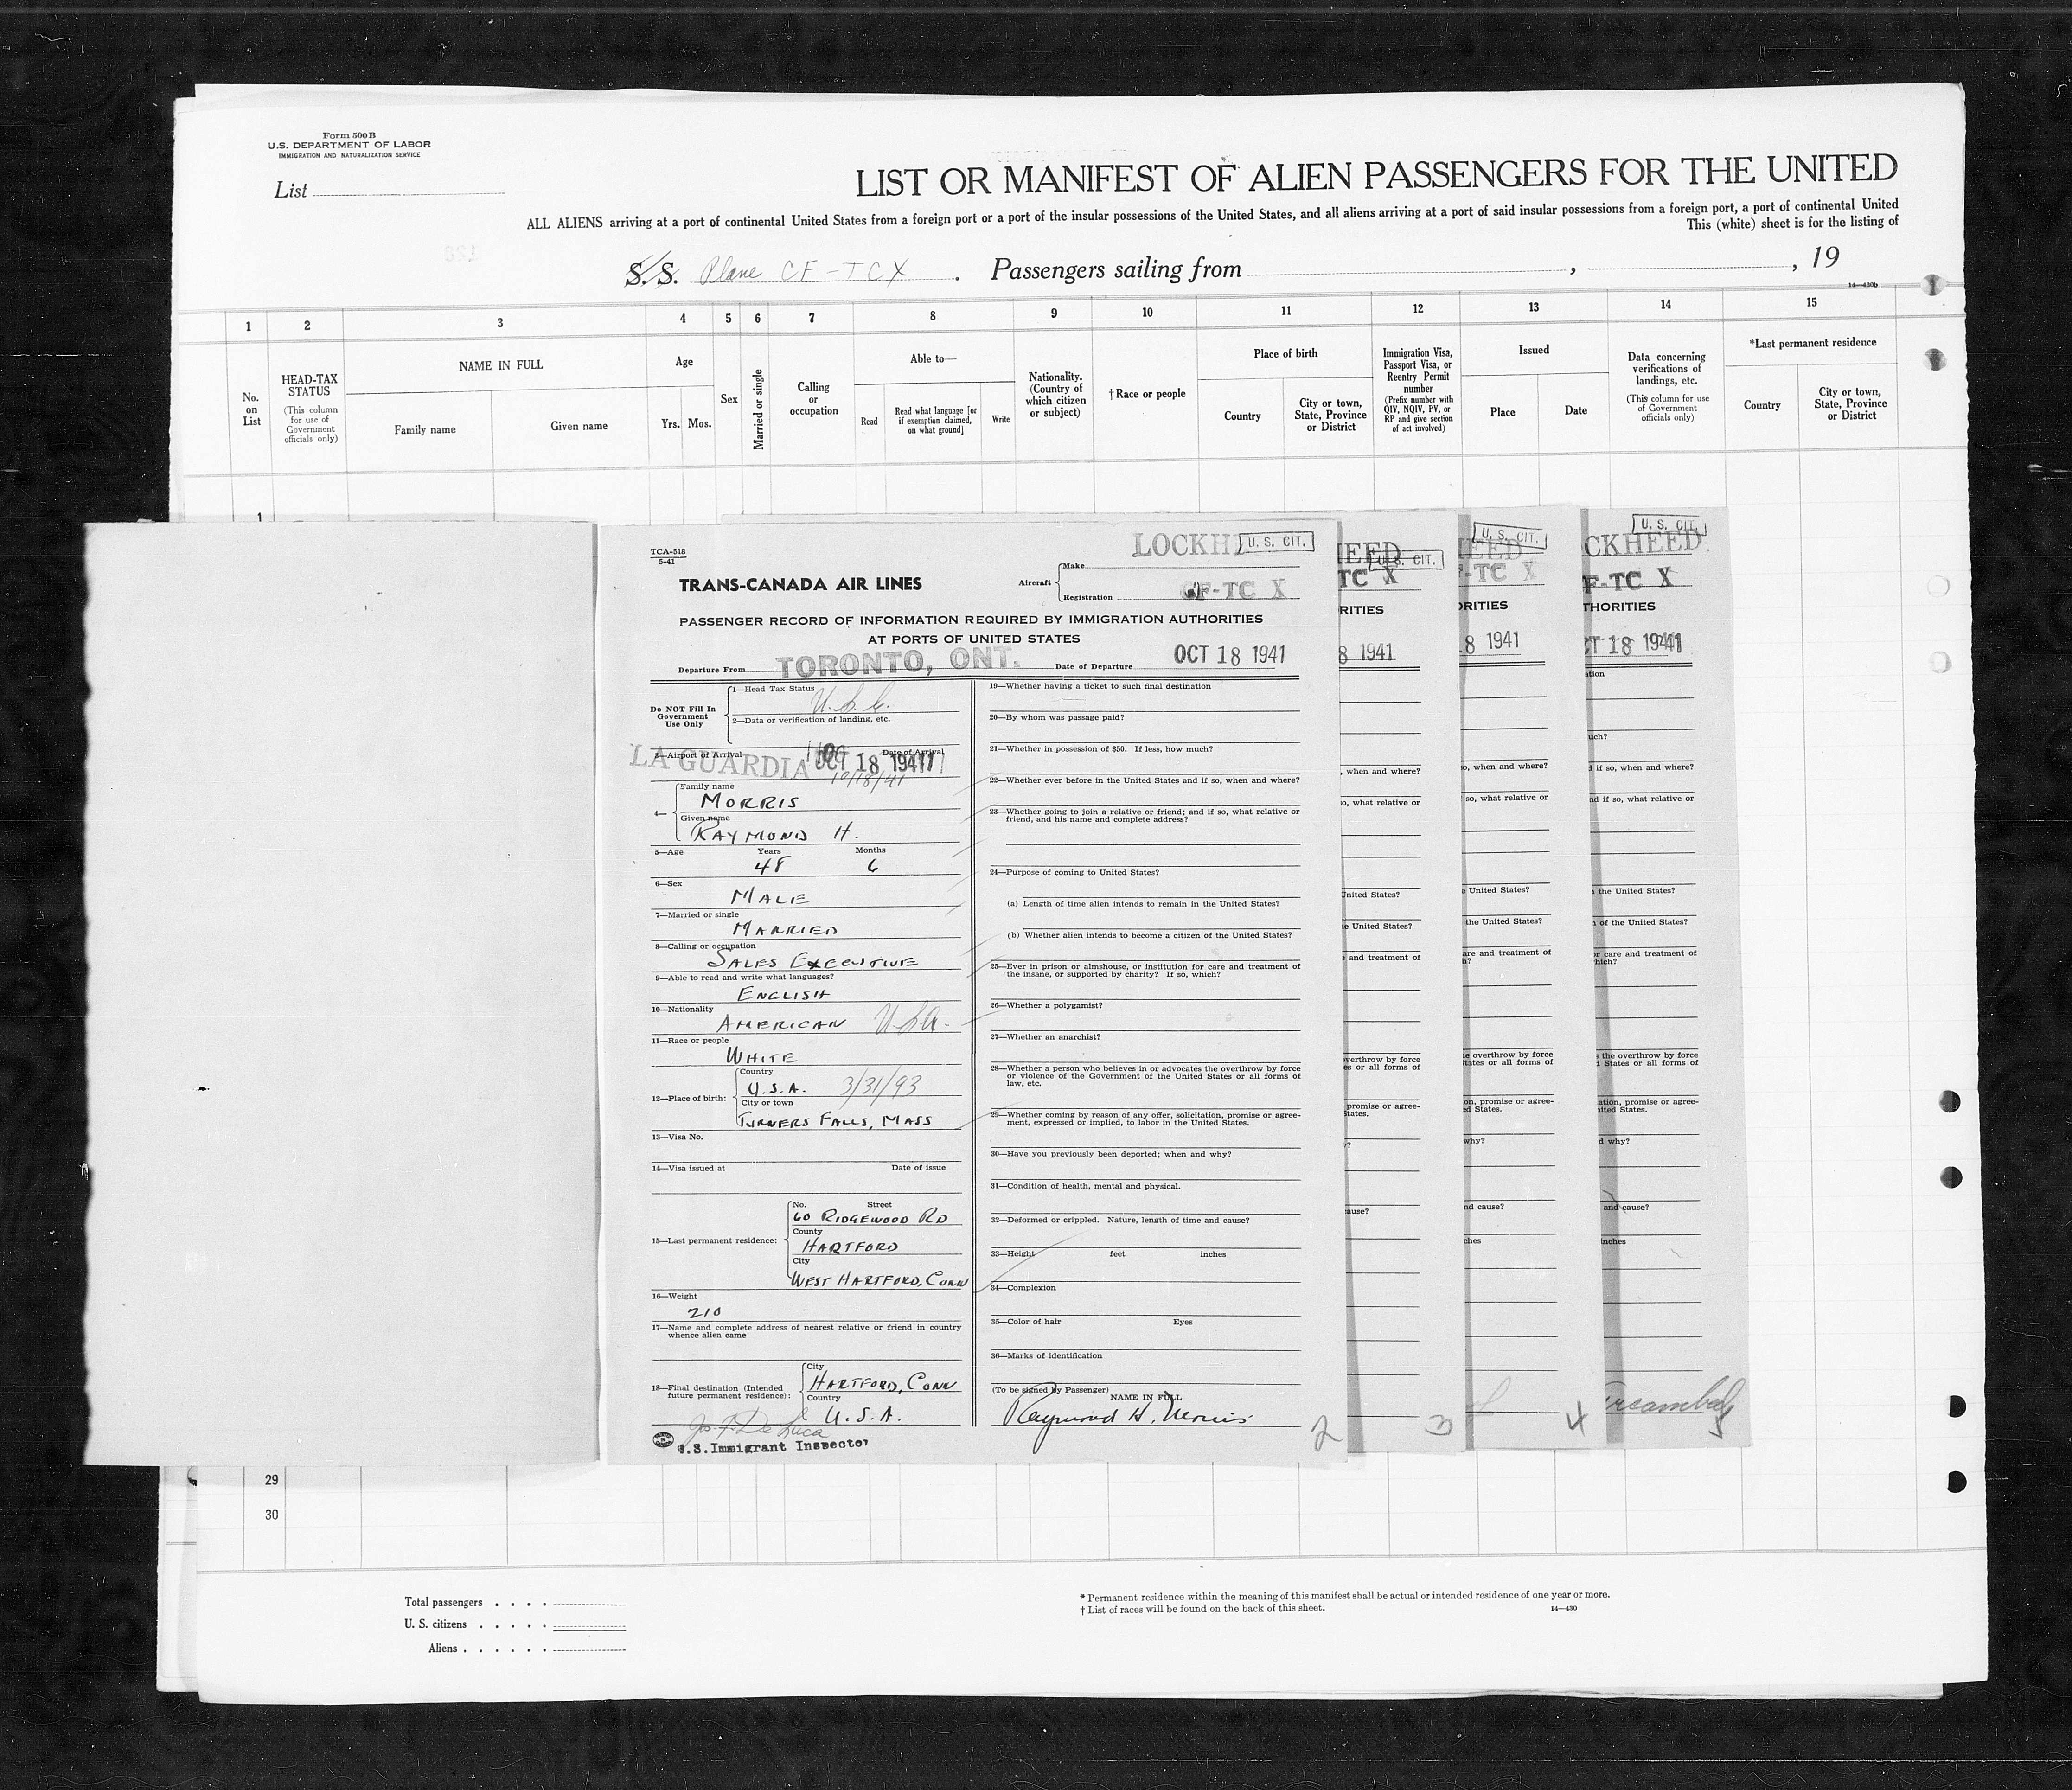 Form 500 B
U.S. DEPARTMENT OF LABOR
IMMIGRATION AND NATURALIZATION SERVICE
List
LIST OR MANIFEST OF ALIEN PASSENGERS FOR THE UNITED
ALL ALIENS arriving at a port of continental United States from a foreign port or a port of the insular possessions of the United States, and all aliens arriving at a port of said insular possessions from a foreign port, a port of continental United
This (white) sheet is for the listing of
S.S. Plane CF-TCX. Passengers sailing from , , 19
14—430b
1 2 3 4 5 6 7 8 9 10 11 12 13 14 15
No. on List
HEAD-TAX STATUS
(This column for use of Government officials only)
NAME IN FULL
Family name Given name
Age
Yrs. Mos.
Sex
Married or single
Calling or occupation
Able to—
Read
Read what language [or if exemption claimed, on what ground]
Write
Nationality. (Country of which citizen or subject)
†Race or people
Place of birth
Country
City or town, State, Province or District
Immigration Visa, Passport Visa, or Reentry Permit number
(Prefix number with QIV, NQIV, PV, or RP and give section of act involved)
Issued
Place Date
Data concerning verifications of landings, etc.
(This column for use of Government officials only)
*Last permanent residence
Country
City or town, State, Province or District
1
TCA-518
5-41
LOCKH
U. S. CIT.
TRANS-CANADA AIR LINES
Aircraft
Make
Registration CF-TC X
PASSENGER RECORD OF INFORMATION REQUIRED BY IMMIGRATION AUTHORITIES
AT PORTS OF UNITED STATES
Departure From TORONTO, ONT. Date of Departure OCT 18 1941
Do NOT Fill In Government Use Only
1—Head Tax Status U.S.C.
2—Data or verification of landing, etc.
3—Airport of Arrival Date of Arrival
LA GUARDIA OCT 18 1941
10/18/41
4—
Family name
MORRIS
Given name
RAYMOND H.
5—Age Years Months
48 6
6—Sex
MALE
7—Married or single
MARRIED
8—Calling or occupation
SALES EXECUTIVE
9—Able to read and write what languages?
ENGLISH
10—Nationality
AMERICAN U.S.A.
11—Race or people
WHITE
12—Place of birth:
Country
U.S.A. 3/31/93
City or town
TURNERS FALLS, MASS
13—Visa No.
14—Visa issued at Date of issue
15—Last permanent residence:
No. Street
60 RIDGEWOOD RD
County
HARTFORD
City
WEST HARTFORD, CONN
16—Weight
210
17—Name and complete address of nearest relative or friend in country
whence alien came
18—Final destination (Intended
future permanent residence):
City
HARTFORD, CONN
Country
U.S.A.
Jos F De Luca
U.S. Immigrant Inspector
19—Whether having a ticket to such final destination
20—By whom was passage paid?
21—Whether in possession of $50. If less, how much?
22—Whether ever before in the United States and if so, when and where?
23—Whether going to join a relative or friend; and if so, what relative or
friend, and his name and complete address?
24—Purpose of coming to United States?
(a) Length of time alien intends to remain in the United States?
(b) Whether alien intends to become a citizen of the United States?
25—Ever in prison or almshouse, or institution for care and treatment of
the insane, or supported by charity? If so, which?
26—Whether a polygamist?
27—Whether an anarchist?
28—Whether a person who believes in or advocates the overthrow by force
or violence of the Government of the United States or all forms of
law, etc.
29—Whether coming by reason of any offer, solicitation, promise or agree-
ment, expressed or implied, to labor in the United States.
30—Have you previously been deported; when and why?
31—Condition of health, mental and physical.
32—Deformed or crippled. Nature, length of time and cause?
33—Height feet inches
34—Complexion
35—Color of hair Eyes
36—Marks of identification
(To be signed by Passenger)
NAME IN FULL
Raymond H. Morris
2
HEED
U. S. CIT.
TC X
RITIES
8 1941
, when and where?
o, what relative or
United States?
e United States?
and treatment of
overthrow by force
es or all forms of
promise or agree-
States.
ause?
3
HEED
U. S. CIT.
F-TC X
ORITIES
18 1941
o, when and where?
so, what relative or
e United States?
the United States?
are and treatment of
e overthrow by force
States or all forms of
on, promise or agree-
ed States.
why?
nd cause?
ches
4
CKHEED
U. S. CIT.
F-TC X
THORITIES
CT 18 1941
ation
uch?
d if so, when and where?
nd if so, what relative or
n the United States?
n of the United States?
or care and treatment of
hich?
s the overthrow by force
d States or all forms of
ation, promise or agree-
nited States.
d why?
and cause?
inches
5
29
30
Total passengers
U. S. citizens
Aliens
* Permanent residence within the meaning of this manifest shall be actual or intended residence of one year or more.
† List of races will be found on the back of this sheet.
14—430